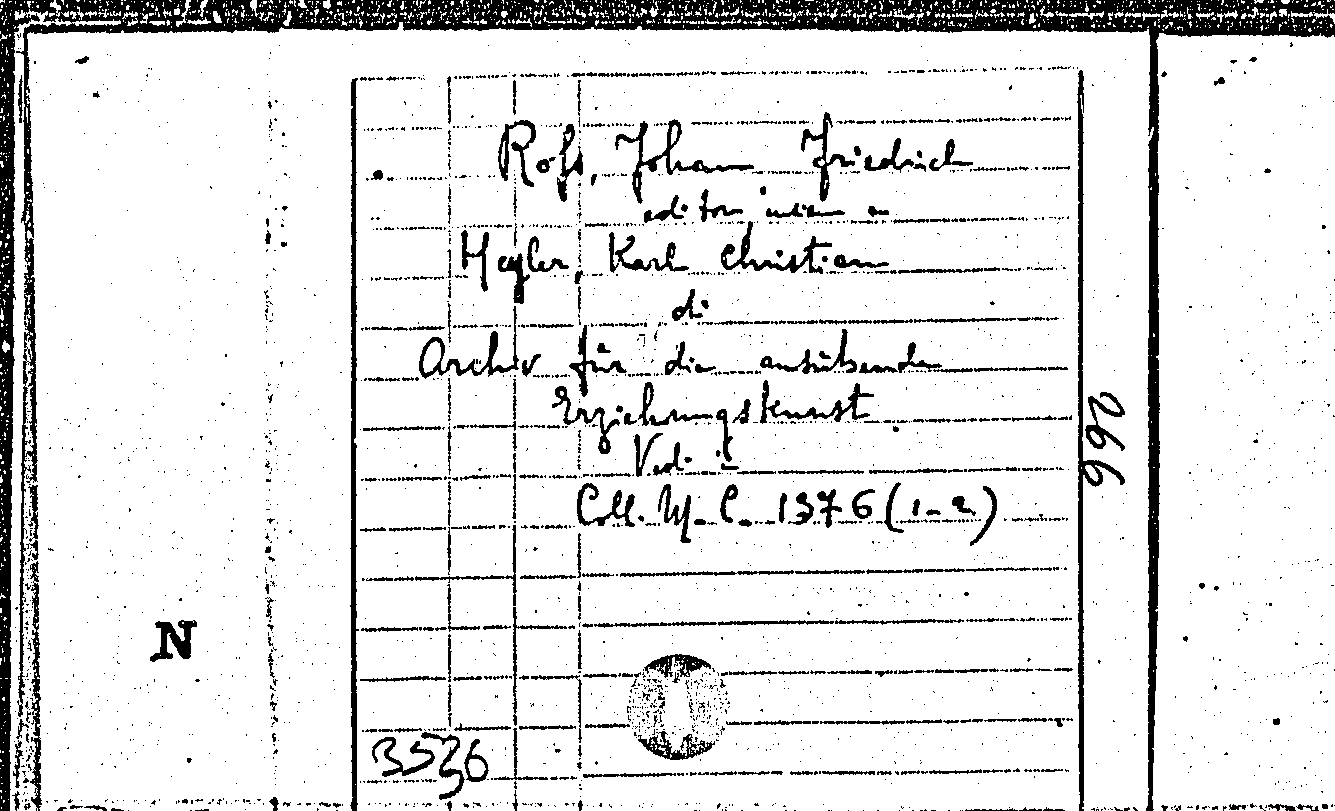 Roſs, Johann Friedrich
editore insieme a
Heyler, Karl Christian
di
Archiv für die ausübende
Erziehungskunst
Vedi
Coll. M. C. 1376 (1-2)
266
N
3536